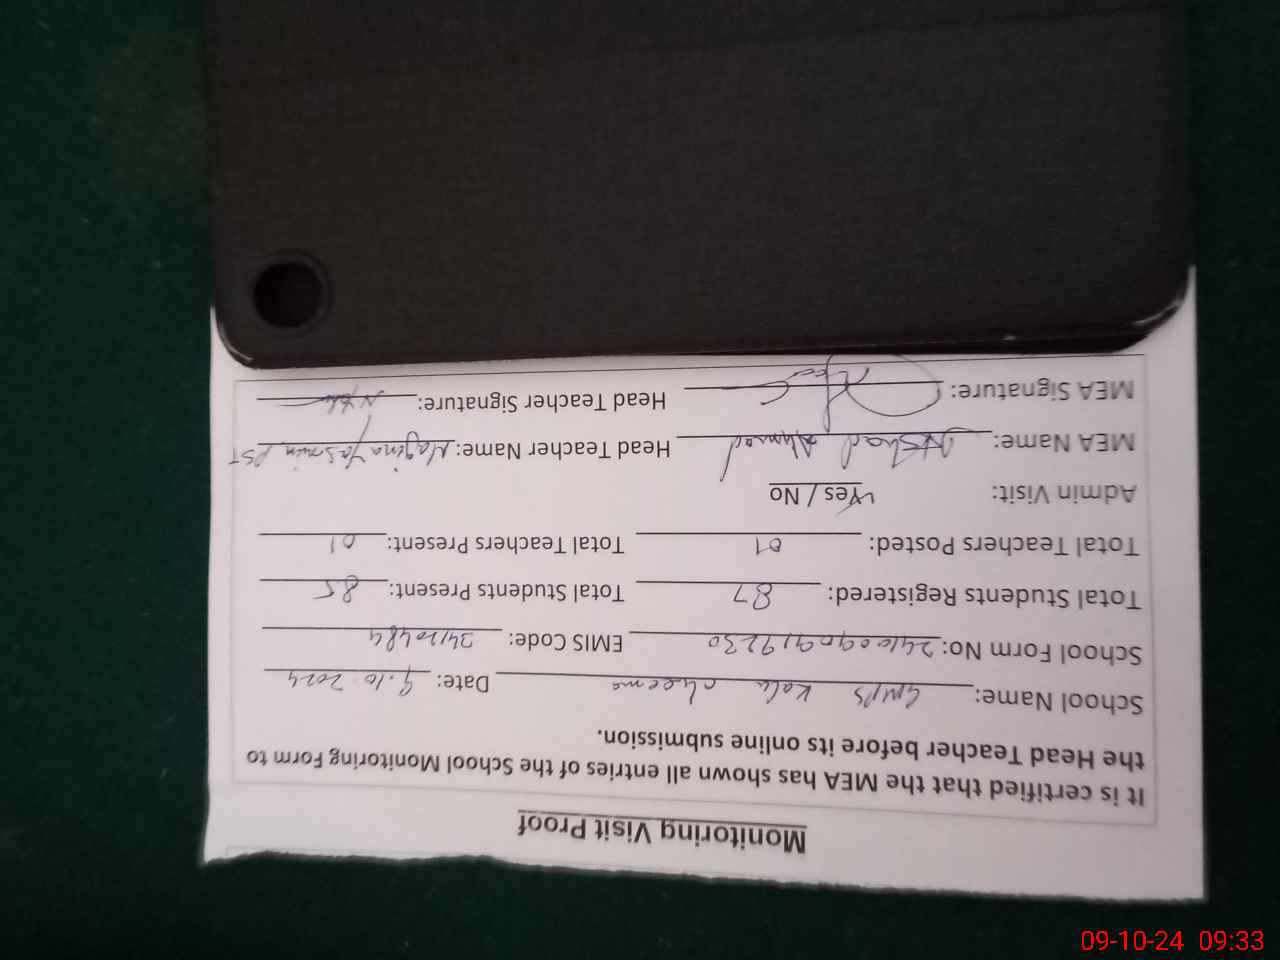 Monitoring Visit Proof
It is certified that the MEA has shown all entries of the School Monitoring Form to
the Head Teacher before its online submission.
School Name: GMPS Kala cheema Date: 9.10.2024
School Form No: EMIS Code: 34120484
Total Students Registered: 87 Total Students Present: 85
Total Teachers Posted: 01 Total Teachers Present: 01
Admin Visit: Yes / No
MEA Name: Ahmed Head Teacher Name: Yasmin PST
MEA Signature: Head Teacher Signature:
09-10-24 09:33